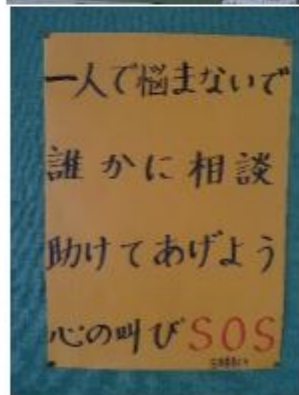 一人で悩まないで
誰かに相談
助けてあげよう
心の叫びSOS